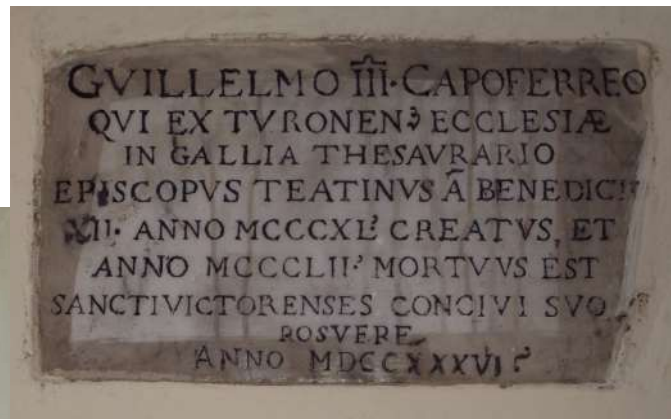 GVILLELMO III · CAPOFERREO
QVI EX TVRONEN ECCLESIÆ
IN GALLIA THESAVRARIO
EPISCOPVS TEATINVS A BENEDIC
XII · ANNO MCCCXL CREATVS, ET
ANNO MCCCLII MORTVVS EST
SANCTIVICTORENSES CONCIVI SVO
POSVERE
ANNO MDCCXXXVI